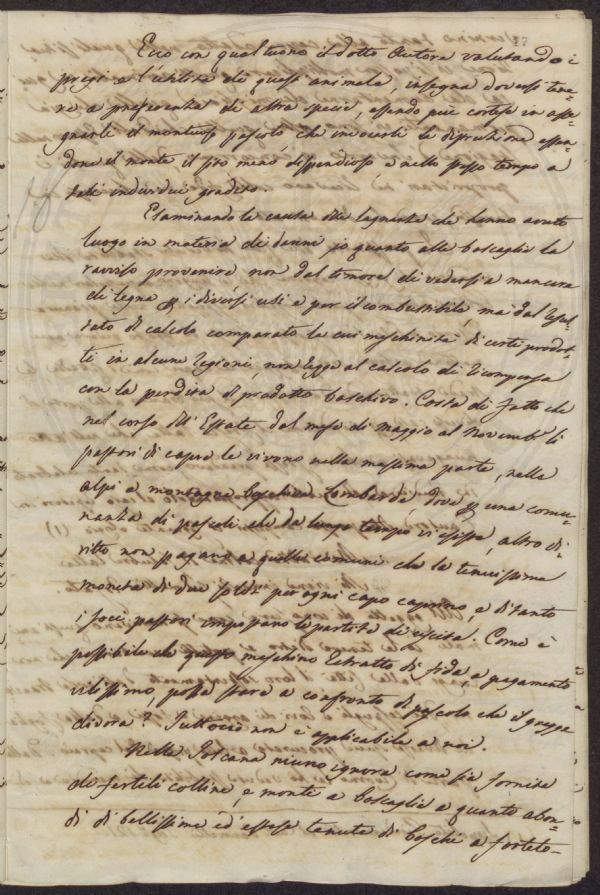 Ecco con qual tuono il dotto Autore valutando i
pregi e l'utilità di questi animale, insegna doversi tene-
re a preferenza di altra specie, essendo più cortese in asse-
gnarli il montuoso pascolo, che invocarli la distruzione essen-
done il monte il sito meno dispendioso e nello stesso tempo a
tali individui gradito.
Esaminando le cause delle lagnanze che hanno avuto
luogo in materia di danni, io quanto alle boscaglie la
ravviso provenire, non dal timore di vedersi a mancare
di legna p i diversi usi e per il combustibile, ma dal resul-
tato di calcolo comparato la cui meschinità di certi prodot-
ti in alcune regioni, non regge al calcolo di ricompensa
con la perdita di prodotto boschivo. Costa di fatto che
nel corso dell'Estate dal mese di Maggio al Novembre li
pastori di capre le vivono nella massima parte, nelle
alpi e montagne boschive Lombarde, dove p una comu-
nanza di pascoli che da lungo tempo vi esiste, altro di-
ritto non pagano a quelle comuni che la tenuissima
moneta di due soldi per ogni capo caprino, e di tanto
i soci pastori impostano le partite di uscita. Come è
possibile che questo meschino Estratto di fida e pagamento
vilissimo, possa stare a confronto di pascolo che il gregge
divora? Tuttociò non è applicabile a noi.
Nella Toscana niuno ignora come sia fornita
di fertili colline, e monte e boscaglie e quanto abon-
di di bellissime ed estese tenute di boschi a forteto-